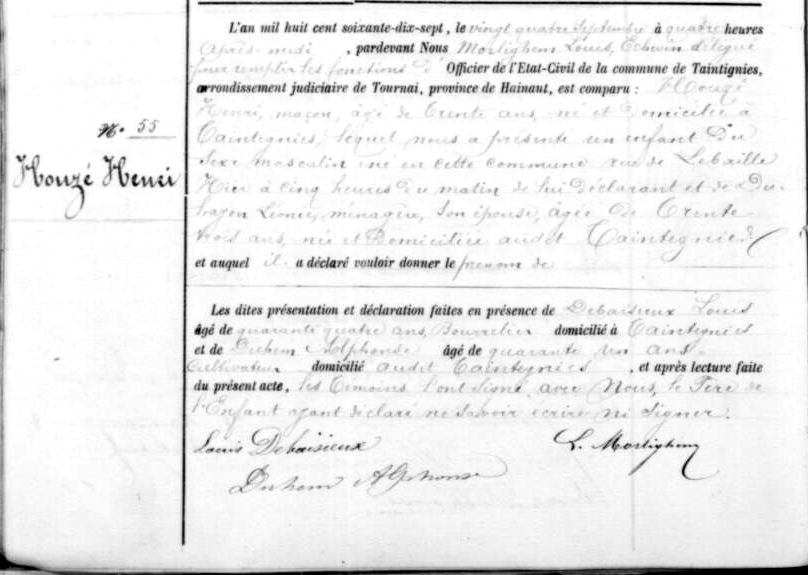 L'an mil huit cent soixante-dix-sept, le vingt quatre Septembre à quatre heures
Après-midi, pardevant Nous Mortighem Louis, Echevin délégué
pour remplir les fonctions d' Officier de l'Etat-Civil de la commune de Taintignies,
arrondissement judiciaire de Tournai, province de Hainaut, est comparu : Houzé
Henri, maçon, âgé de trente ans, né et Domicilié à
Taintegnies, lequel nous a présenté un enfant du
Sexe masculin né en cette commune rue de Lebaille
Hier à cinq heures du matin de lui déclarant et de Du-
Léonie, ménagère, Son épouse, âgée de trente
trois ans, née et Domiciliée audit Taintegnies
et auquel il a déclaré vouloir donner le prénom de
N.o 55
Houzé Henri
Les dites présentation et déclaration faites en présence de Debaisieux Louis
âgé de quarante quatre ans, Bourrelier domicilié à Taintegnies
et de Duhem Alphonse âgé de quarante un ans
Cultivateur domicilié audit Taintegnies, et après lecture faite
du présent acte, les témoins l'ont Signé avec Nous, le Père de
l'Enfant ayant déclaré ne Savoir écrire ni Signer.
Louis Debaisieux L. Mortighem
Duhem Alphonse